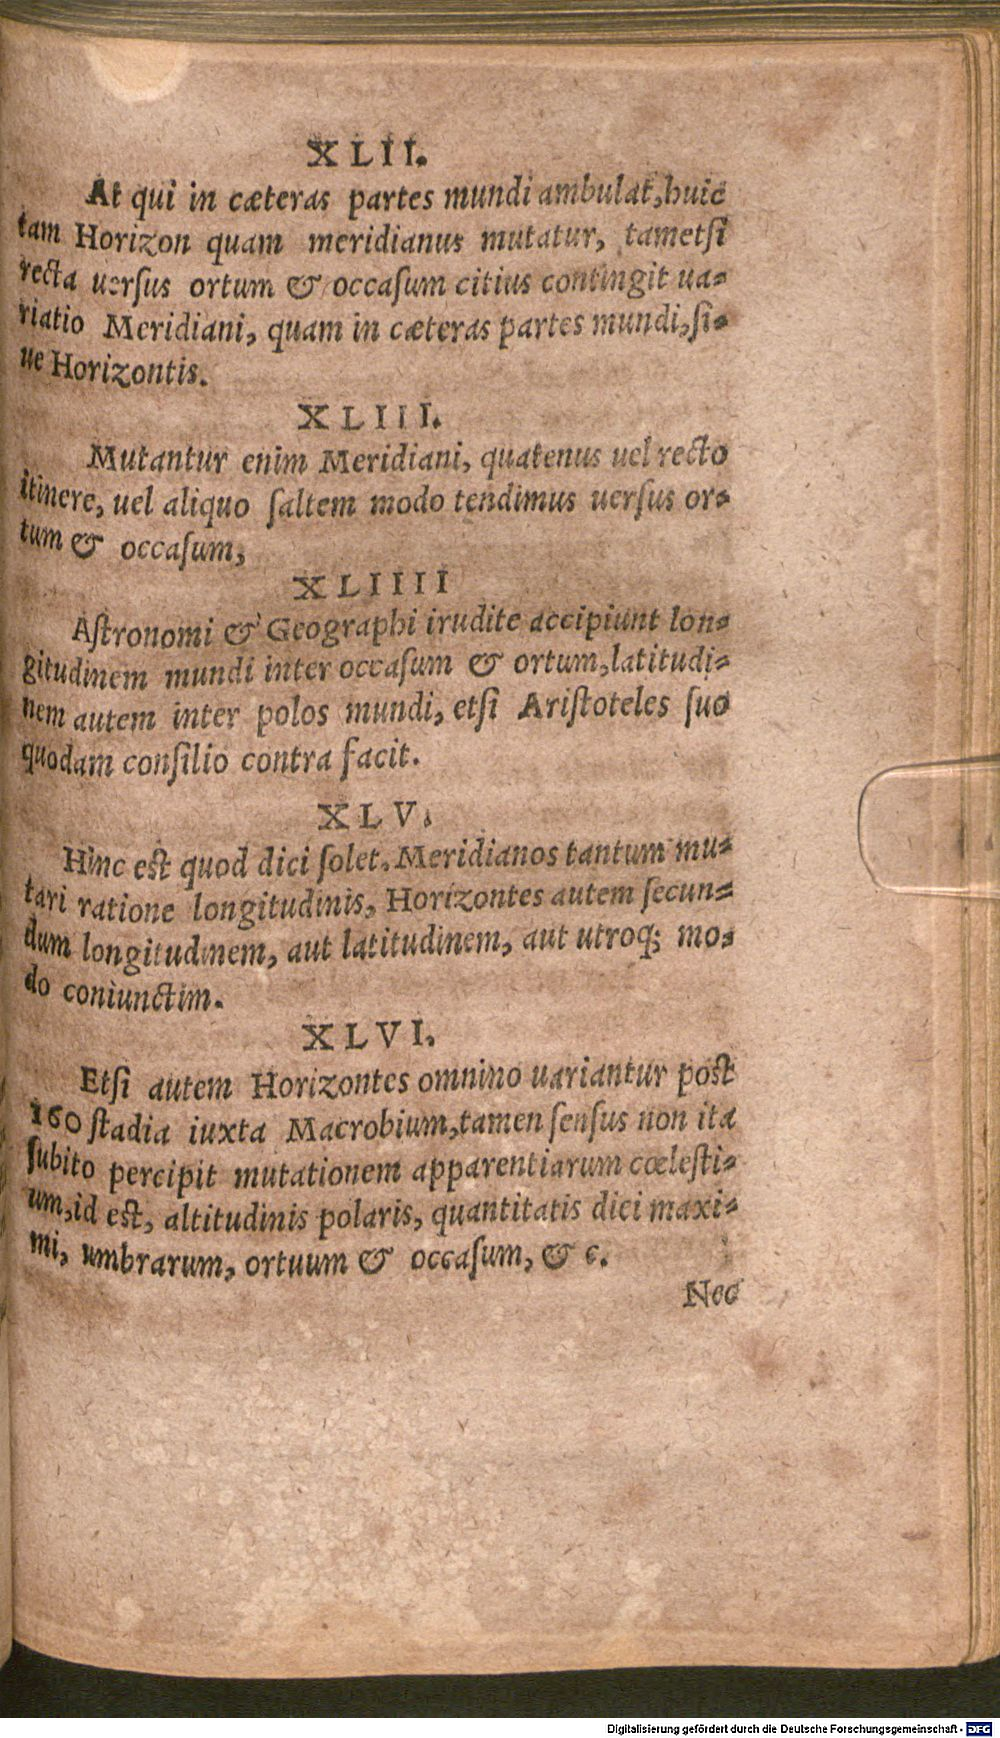 XLII.
At qui in cæteras partes mundi ambulat, huic
tam Horizon quam meridianus mutatur, tametsi
recta uersus ortum & occasum citius contingit ua-
riatio Meridiani, quam in cæteras partes mundi, si-
ue Horizontis.
XLIII.
Mutantur enim Meridiani, quatenus uel recto
itinere, uel aliquo saltem modo tendimus uersus or-
tum & occasum,
XLIIII
Astronomi & Geographi irudite accipiunt lon-
gitudinem mundi inter occasum & ortum, latitudi-
nem autem inter polos mundi, etsi Aristoteles suo
quodam consilio contra facit.
XLV.
Hinc est quod dici solet, Meridianos tantum mu-
tari ratione longitudinis, Horizontes autem secun-
dum longitudinem, aut latitudinem, aut utroq; mo-
do coniunctim.
XLVI.
Etsi autem Horizontes omnino uariantur post
160 stadia iuxta Macrobium, tamen sensus non ita
subito percipit mutationem apparentiarum cœlesti-
um, id est, altitudinis polaris, quantitatis dici maxi-
mi, umbrarum, ortuum & occasum, & c.
Nec
Digitalisierung gefördert durch die Deutsche Forschungsgemeinschaft - DFG